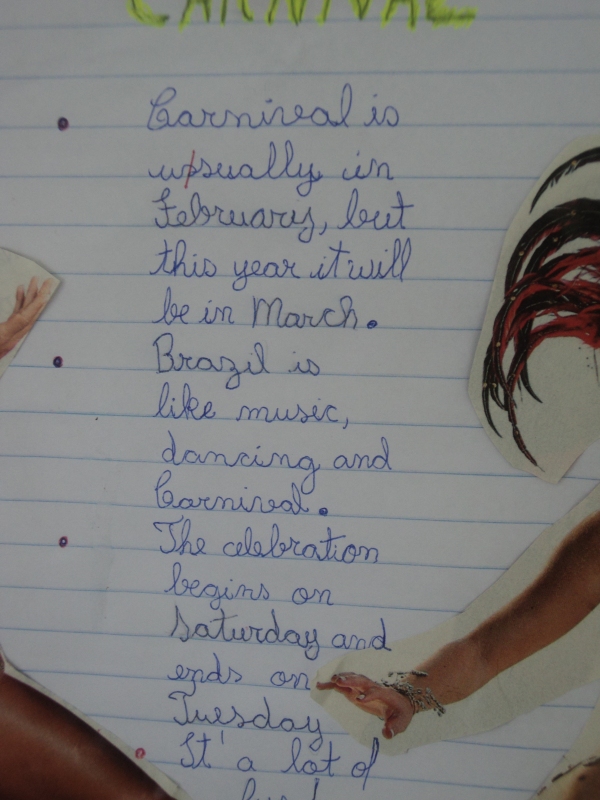 CARNIVAL
Carnival is
upsually in
February, but
this year it will
be in March.
Brazil is
like music,
dancing and
Carnival.
The celebration
begins on
Saturday and
ends on
Tuesday
It' a lot of